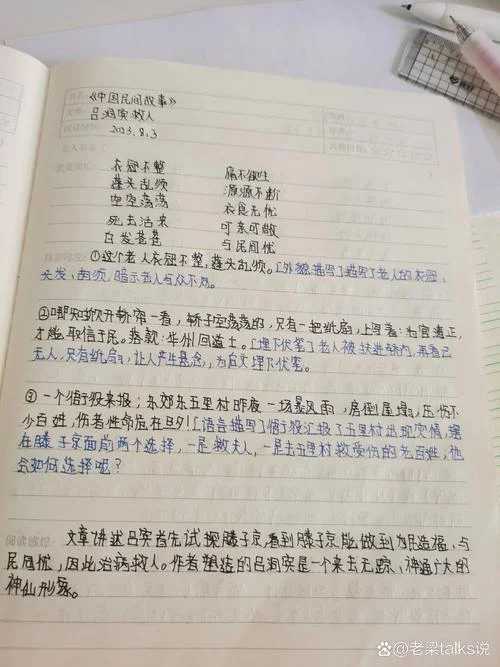 书名:《中国民间故事》
文章: 吕洞宾救人
阅读时间: 2023.8.3
名人名言:
优美词汇: 衣冠不整 痛不欲生
蓬头乱须 源源不断
空空荡荡 衣食无忧
死去活来 可亲可敬
白发苍苍 与民同忧
①这个老人衣冠不整,蓬头乱须。[外貌描写]描写了老人的衣冠、
头发、胡须,暗示老人与众不同。
②哪知掀开轿帘一看,轿子空荡荡的,只有一把纸扇,上写着:为官清正,
才能取信于民。落款:华州回道士。[埋下伏笔]了老人被扶进轿内,再看已
无人,只有纸扇,让人产生悬念,为后文埋下伏笔。
③一个衙役来报:东郊东五里村昨夜一场暴风雨,房倒屋塌,压伤不
小百姓,伤者性命危在旦夕![语言描写]了衙役汇报了五里村出现灾情,摆
在滕子京面前两个选择,一是救夫人,一是去五里村救受伤的老百姓,他
会如何选择呢?
阅读感悟: 文章讲述吕宾首先试探滕子京,看到滕子京能做到为民造福,与
民同忧,因此治病救人。作者塑造的吕洞宾是一个来去无踪、神通广大的
神仙形象。
@老梁talks说